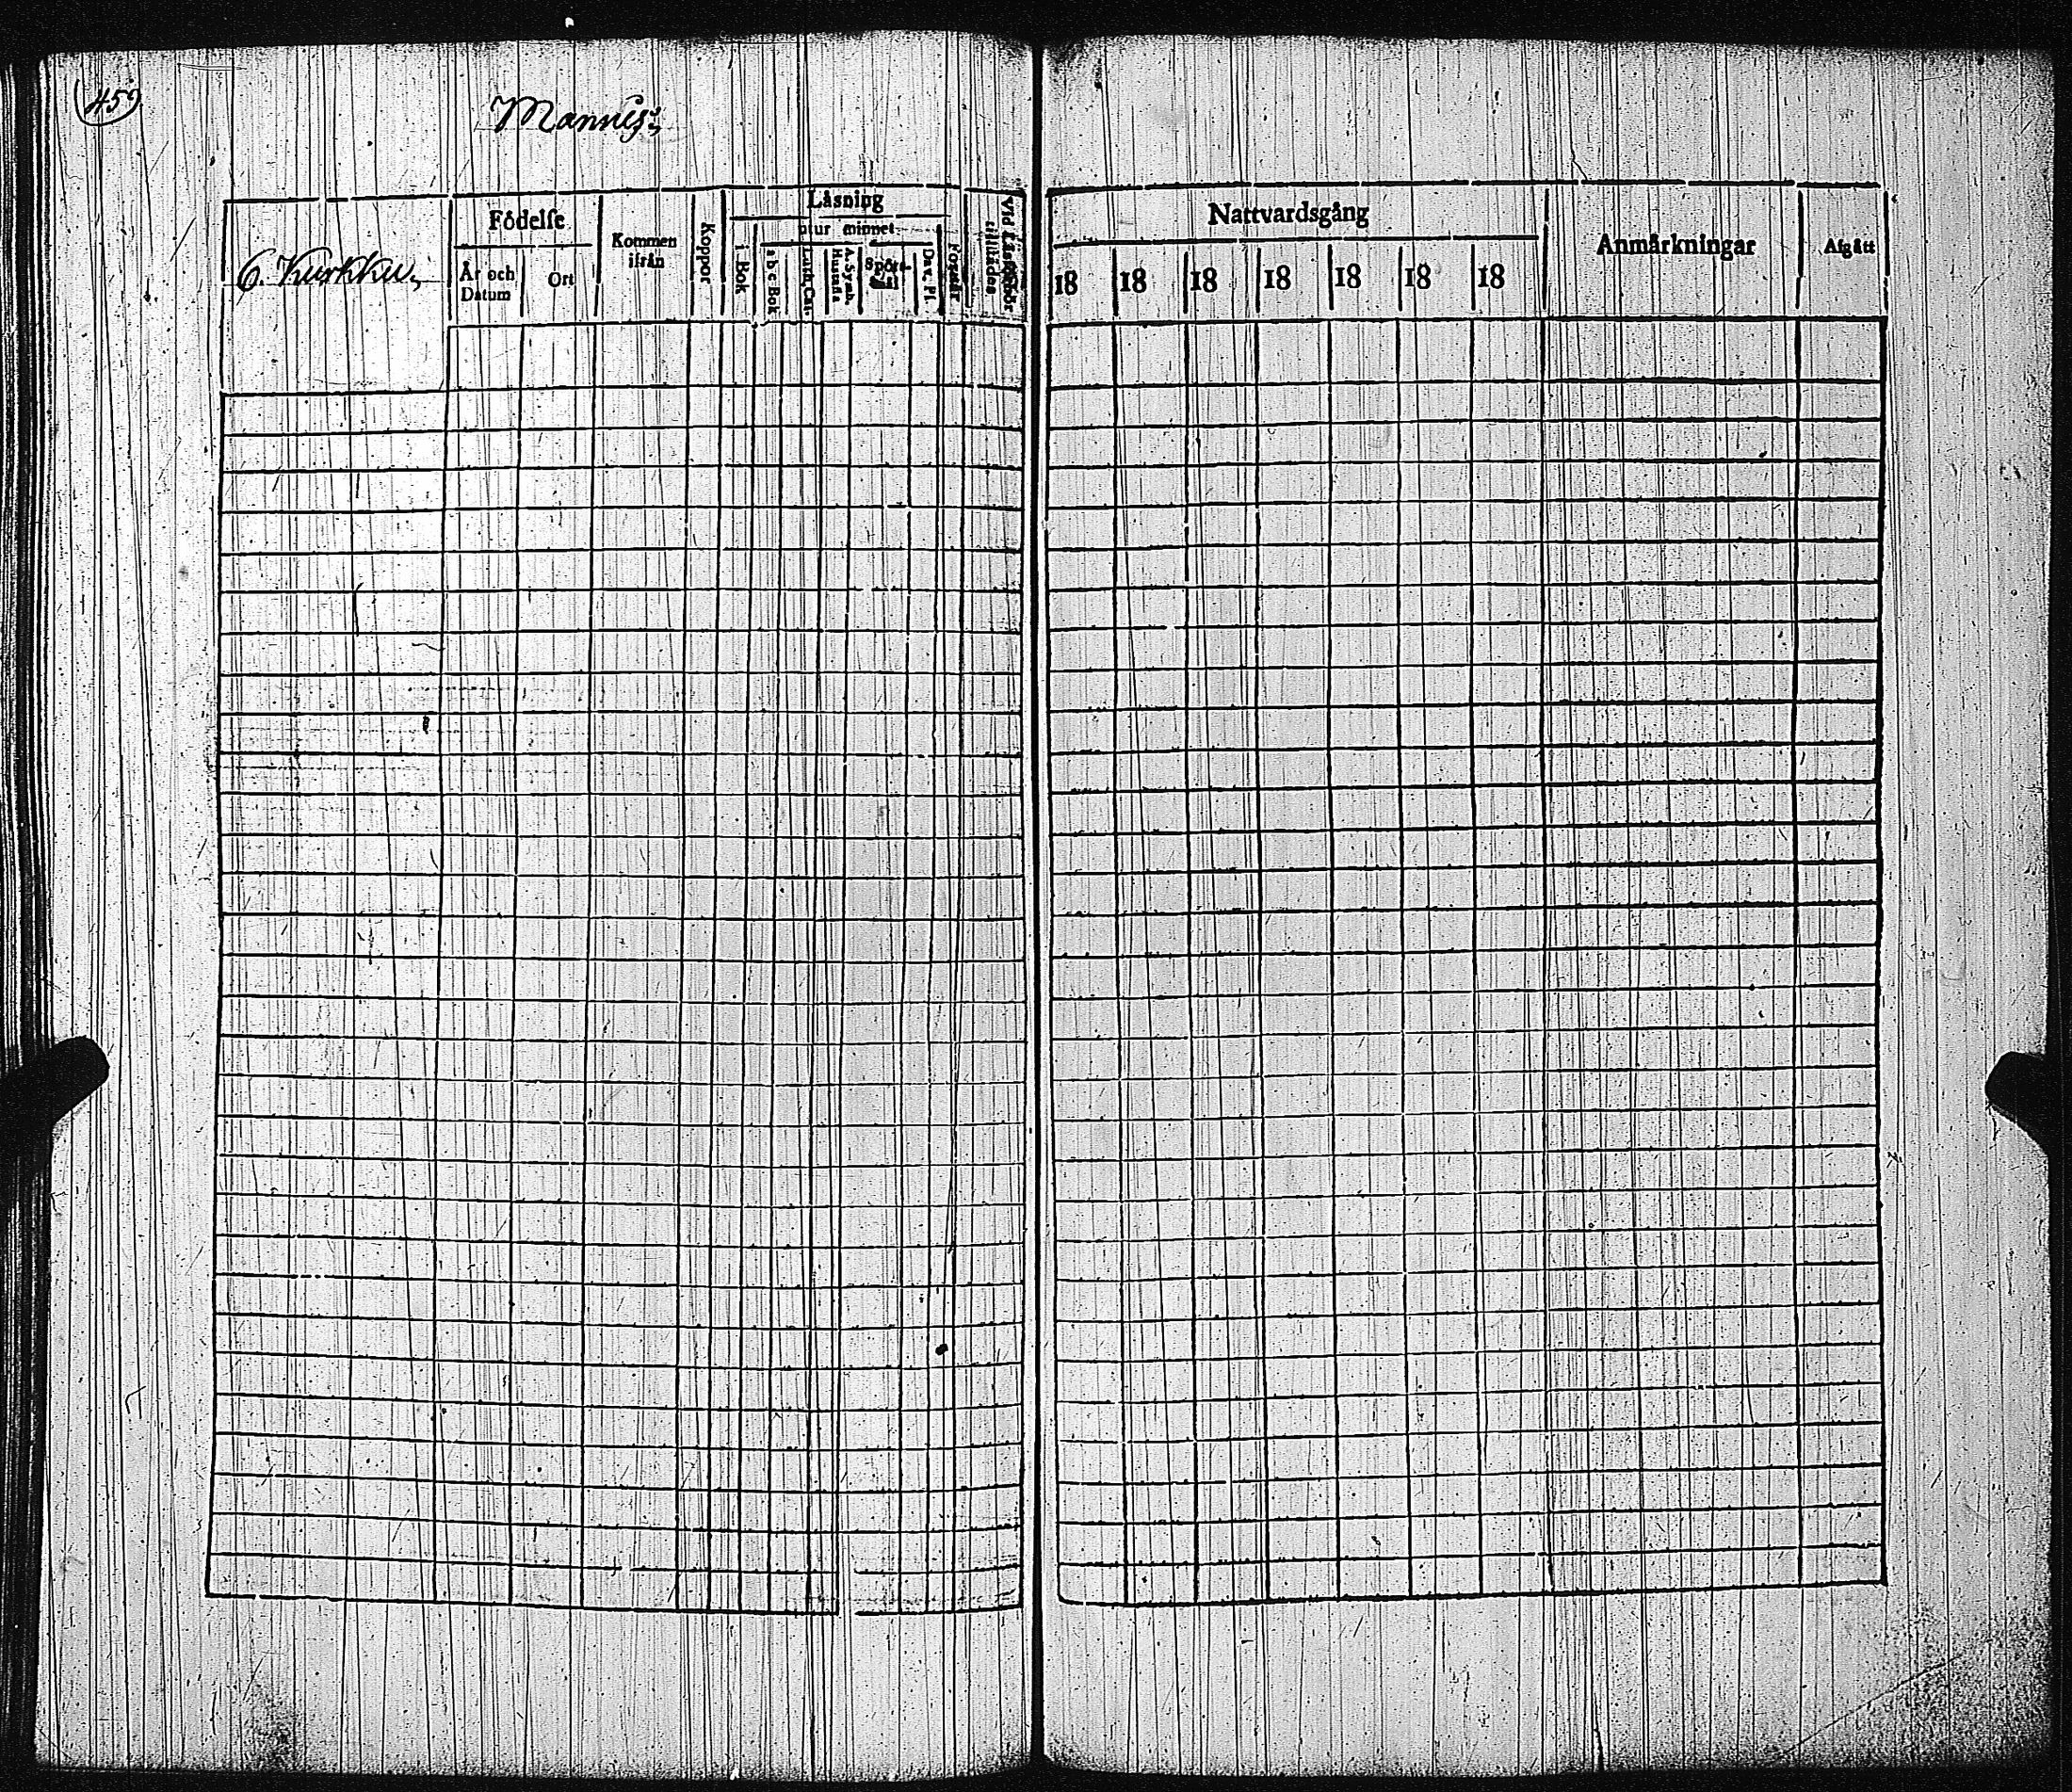 459
Mannis;
6. Kurkku,
Födelse
År och Datum
Ort
Kommen ifrån
Koppor
Läsning
utur minnet
i Bok
a b c Bok
Luth. Cat.
A. Symb. Hustafla
Spörsmål
Dav. Ps.
Förstår
Nattvardsgång
18 18 18 18 18 18 18
Anmärkningar
Afgått